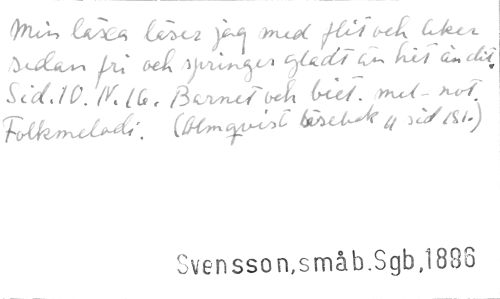 Min läxa läser jag med flit och leker
sedan fri och springer gladt än hit än dit.
Sid. 10. N. 16. Barnet och biet. mel- not.
Folkmelodi. (Almqvist läsebok sid 151.)
Svensson,småb.Sgb,1886